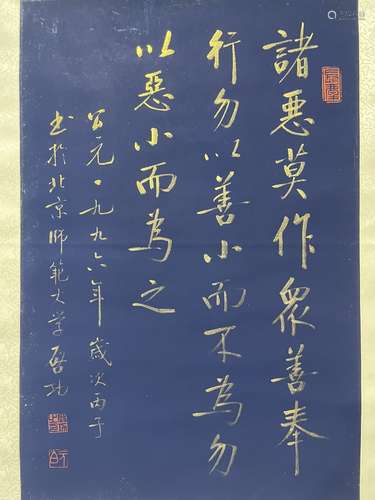 諸惡莫作眾善奉
行勿以善小而不為勿
以惡小而為之
公元一九九六年歲次丙子
書於北京師範大學啟功